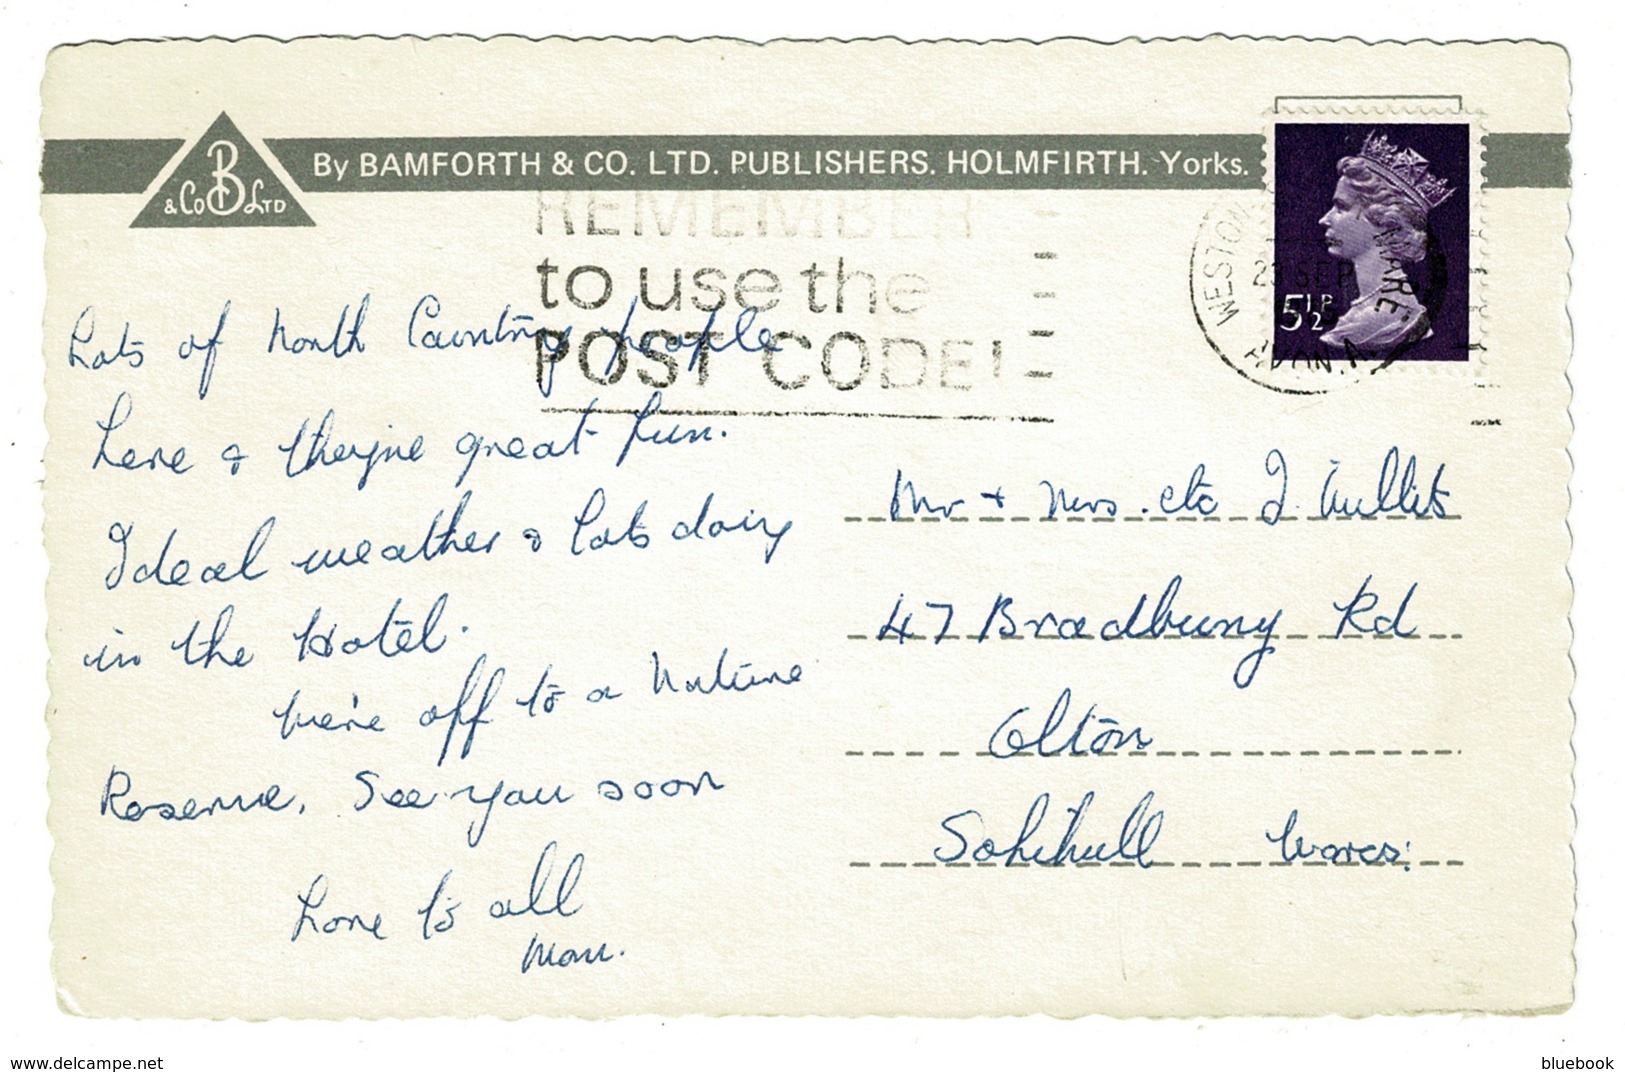 & Co B Ltd
By BAMFORTH & CO. LTD. PUBLISHERS. HOLMFIRTH. Yorks.
REMEMBER
to use the
POST CODE!
WESTON MARE
23 SEP
AVON. A
5½P
Lots of North Country people
here & they're great fun.
Ideal weather & lots doing
in the Hotel.
We're off to a Nature
Reserve. See you soon
Love to all
Mr + Mrs. etc J.
47 Bradbury Rd
Olton
Solihull Warcs:
delcampe.net
bluebook